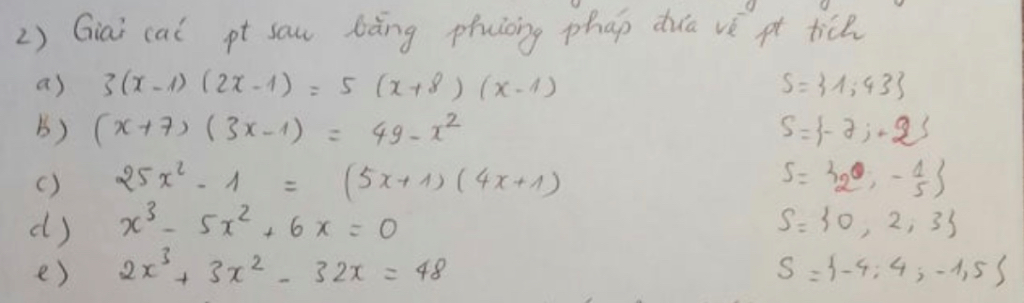 2) Giải các pt sau bằng phương pháp đưa về pt tích
a) 3(x-1)(2x-1) = 5(x+8)(x-1) S={1;43}
b) (x+7)(3x-1) = 49-x² S={-7;+2}
c) 25x² - 1 = (5x+1)(4x+1) S={2; -1/5}
d) x³ - 5x² + 6x = 0 S={0, 2, 3}
e) 2x³ + 3x² - 32x = 48 S={-4; 4; -1,5}